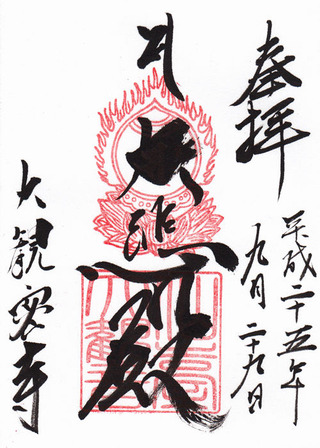 奉拝
平成二十五年
九月二十九日
大悲殿
大観密寺